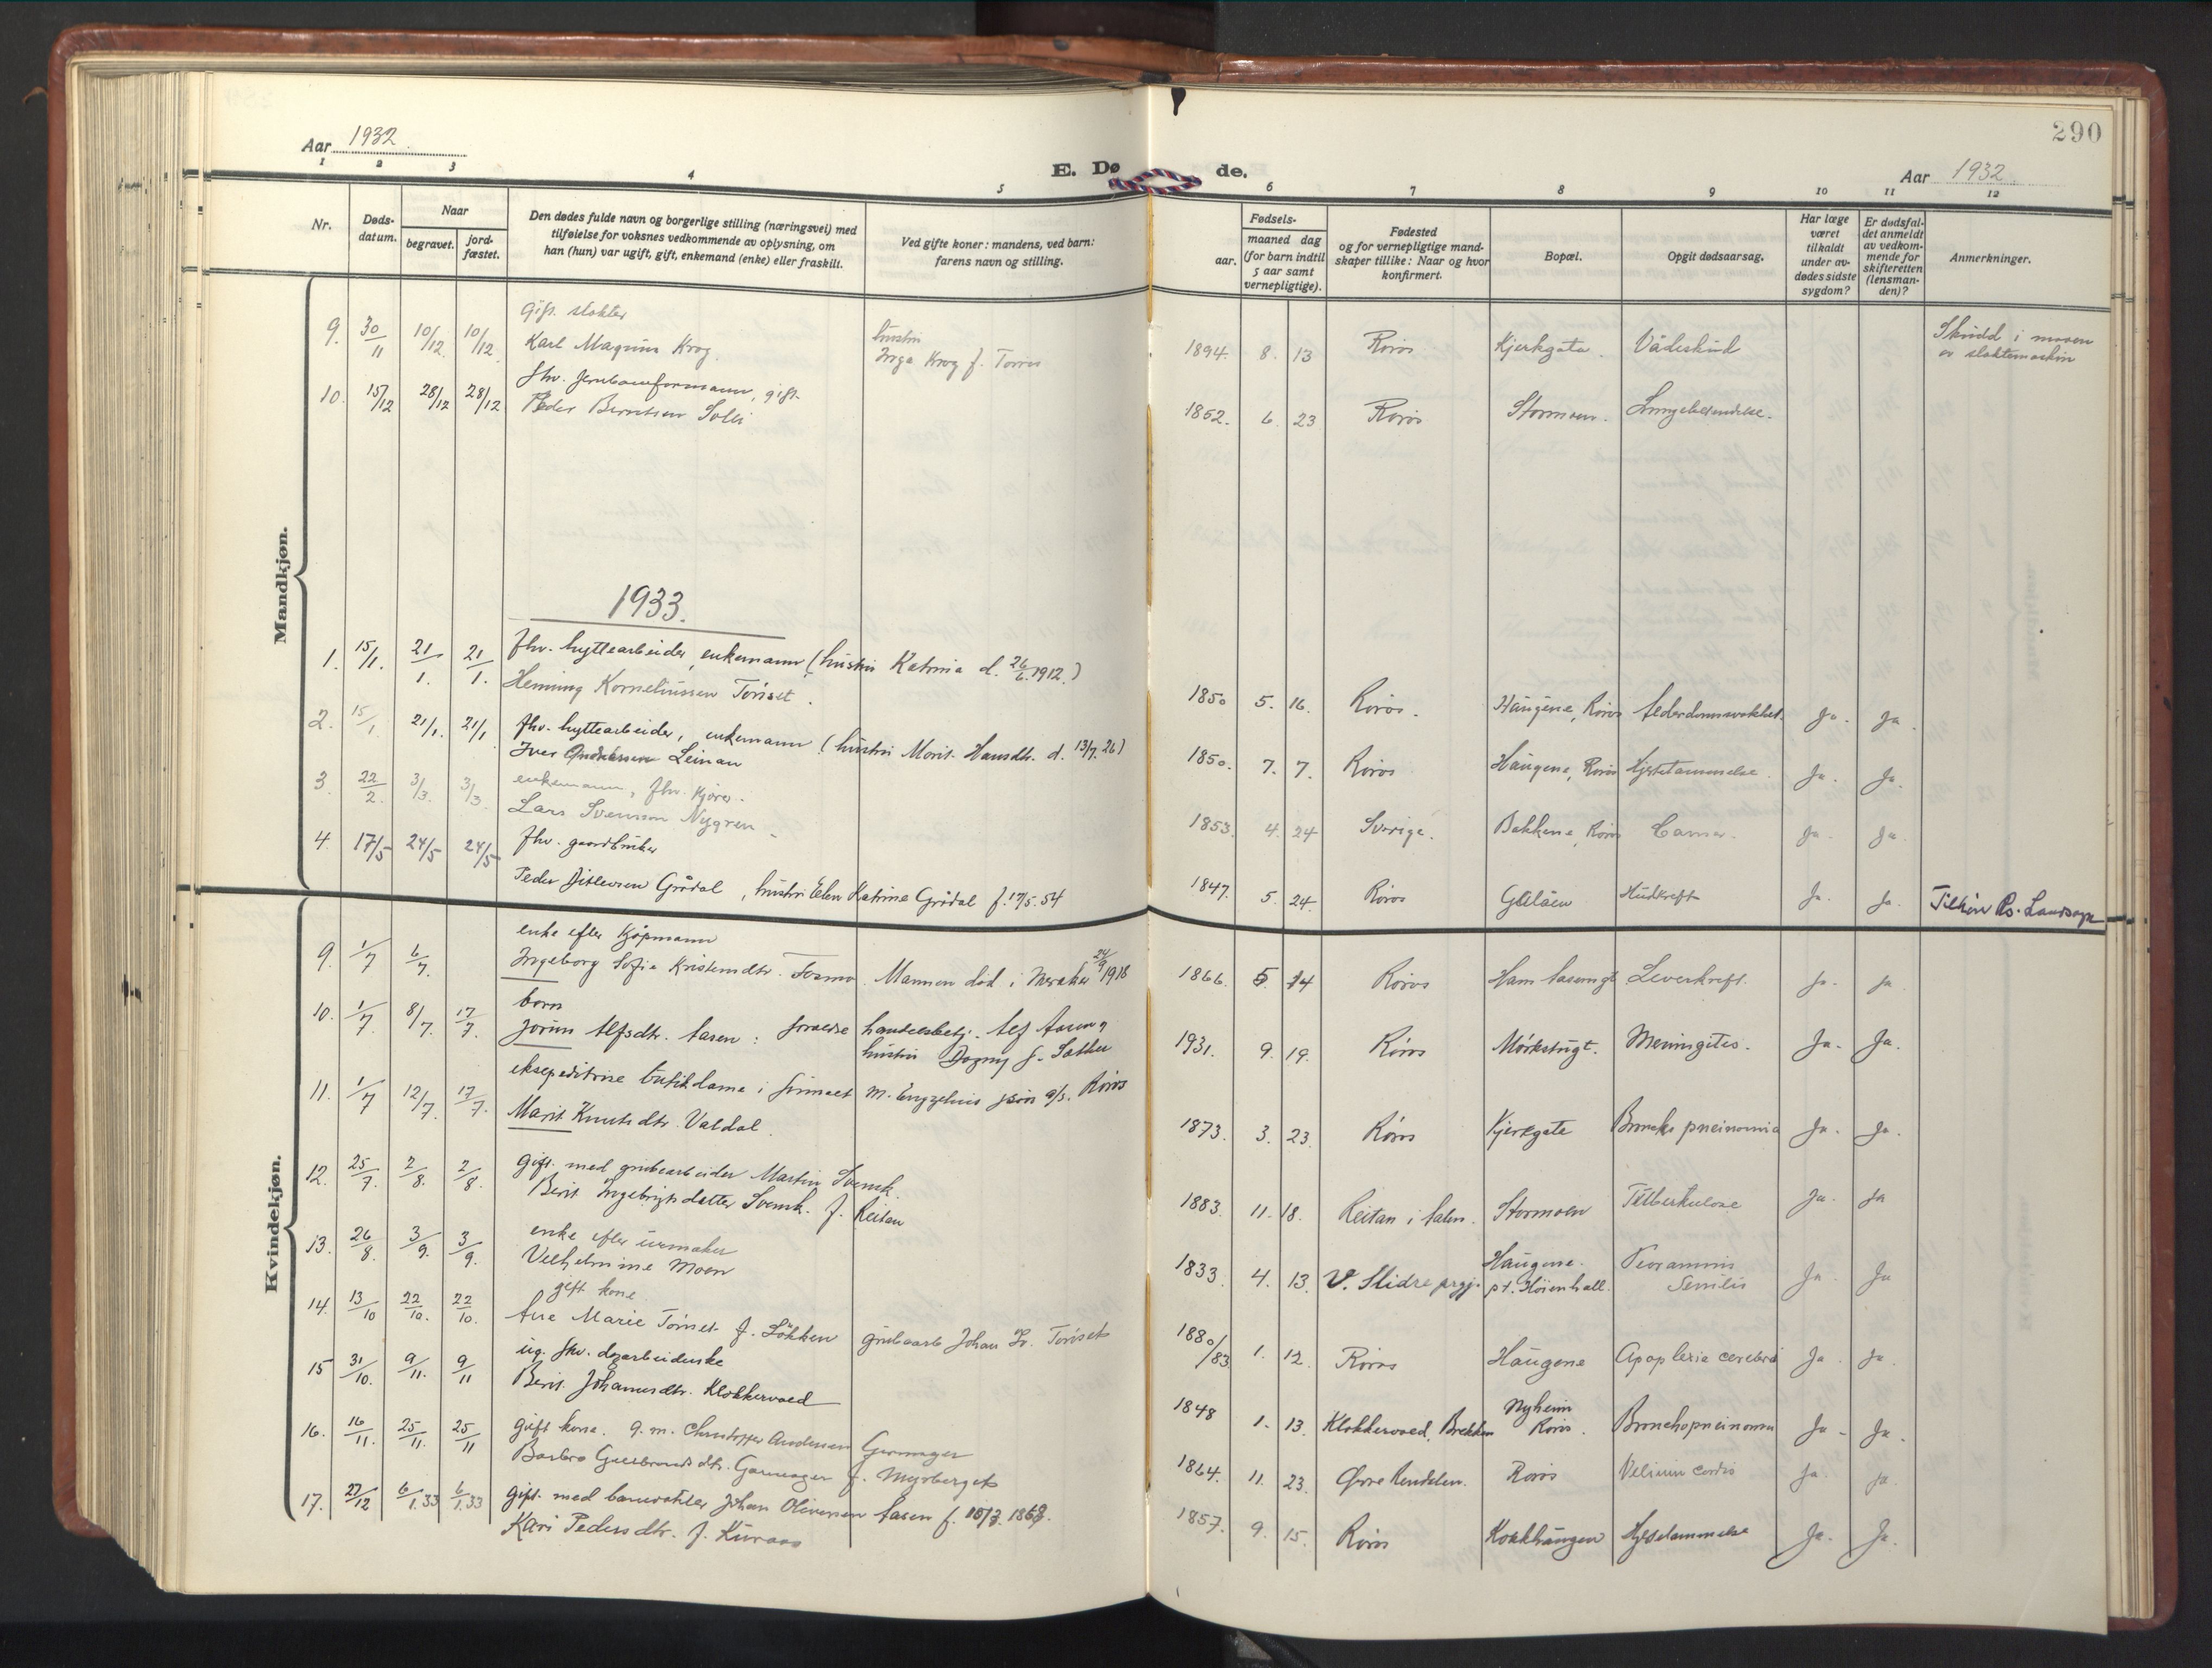 290
Aar 1932
E. Døde.
Aar 1932
1 2 3 4 5 6 7 8 9 10 11 12
Nr.
Døds-datum.
Naar
begravet.
jord-fæstet.
Den dødes fulde navn og borgerlige stilling (næringsvei) med
tilføielse for voksnes vedkommende av oplysning, om
han (hun) var ugift, gift, enkemand (enke) eller fraskilt.
Ved gifte koner: mandens, ved barn:
farens navn og stilling.
Fødsels-
aar.
maaned dag
(for barn indtil
5 aar samt
vernepligtige).
Fødested
og for vernepligtige mand-
skaper tillike: Naar og hvor
konfirmert.
Bopæl.
Opgit dødsaarsag.
Har læge
været
tilkaldt
under av-
dødes sidste
sygdom?
Er dødsfal-
det anmeldt
av vedkom-
mende for
skifteretten
(lensman-
den)?
Anmerkninger.
Mandkjøn.
gift. slakter
9. 30/11 10/12 10/12 Karl Magnus Krog. hustru Inga Krog f. 1894. 8. 13 Røros Kjerkgata. Vådeskudd Skudd i maven
av slaktemaskin
fhv. jernbaneformann, gift.
10. 15/12 28/12 28/12 Peder Berntsen Solli 1852. 6. 23 Røros Stormoen. Lungebetendelse.
1933.
fhv. hyttearbeider, enkemann (hustru Katrina d. 26/6 1912.)
1. 15/1. 21/1. 21/1. Henning Korneliussen Torset. 1850 5. 16. Røros. Haugene, Røros Ja. Ja
fhv. hyttearbeider, enkemann (hustru Marit Hansdtr. d. 13/7. 26)
2. 15/1 21/1. 21/1 Iver Leinan 1850. 7. 7. Røros Haugene, Røros Hjertelammelse. Ja. Ja
enkemann, fhv. kjører.
3. 22/2. 3/3. 3/3. Lars Svensson Nygren 1853. 4. 24 Sverige. Bakkene, Røros Cancer. Ja. Ja.
fhv. gaardbruker
4. 17/5 24/5 24/5 Peder Ditlevsen Grådal, hustru Elen Katrine Grådal f. 17/5. 54 1847. 5. 24. Røros Galåen Hudkreft Ja. Ja. Tilhør Rs. Landsogn
Kvindekjøn.
enke efter kjøpmann
9. 1/7 6/7. Ingeborg Sofie Kristendtr. Mannen død i Meraker 24/9 1918 1866 5. 14 Røros Leverkreft. Ja. Ja
barn
10. 1/7. 8/7. 17/7. Jorun Alfsdtr. Aasen: foreldre handelsbetj. Alf Aasen og
hustru Dagny f. Sather 1931. 9. 19. Røros Mørkstugt. Meningitis. Ja. Ja.
ekspeditrise butikdame i firmaet M. Engzelius & søn a/s. Røros
11. 1/7 12/7. 17/7. Marit Knutsdtr. Valdal. 1873. 3. 23. Røros Kjerkgate Bronko pneinomia Ja. Ja.
gift med grubearbeider Martin Svensk.
12. 25/7. 2/8. 2/8. Berit Ingebrigtsdatter Svensk. f. Reitan 1883. 11. 18. Reitan i Aalen. Stormoen Tuberkulose Ja. Ja
enke efter urmaker
13. 26/8. 3/9. 3/9. Vilhelmine Moen 1833. 4. 13. V. Slidre prgj. Haugene.
pt. Senilis Ja Ja
gift kone.
14. 13/10 22/10. 22/10. Ane Marie Torset f. Løkken grubearb Johan Torset 1880/83. 1. 12. Røros Haugene Apoplexia cerebri Ja. Ja.
ug. fhv. dagarbeiderske
15 31/10. 9/11. 9/11 Berit Johannesdtr. Klokkervoed 1848 1. 13. Klokkervoed, Brekken Nyheim
Røros. Bronchopneinomi Ja. Ja.
gift kone. g. m. Christopfer Andersen
16. 16/11. 25/11. 25/11 Barbro Gulbrandsdtr. f. Myrberget 1864. 11. 23. Øvre Rendalen. Røros Vitium cordis Ja. Ja.
gift med banevokter Johan Oliversen Aasen f. 10/3. 1868.
17. 27/12 6/1.33 6/1.33 Kari Pedersdtr. f. Kuraas 1857. 9. 15. Røros Kokkhaugen Hjertelammelse Ja. Ja.